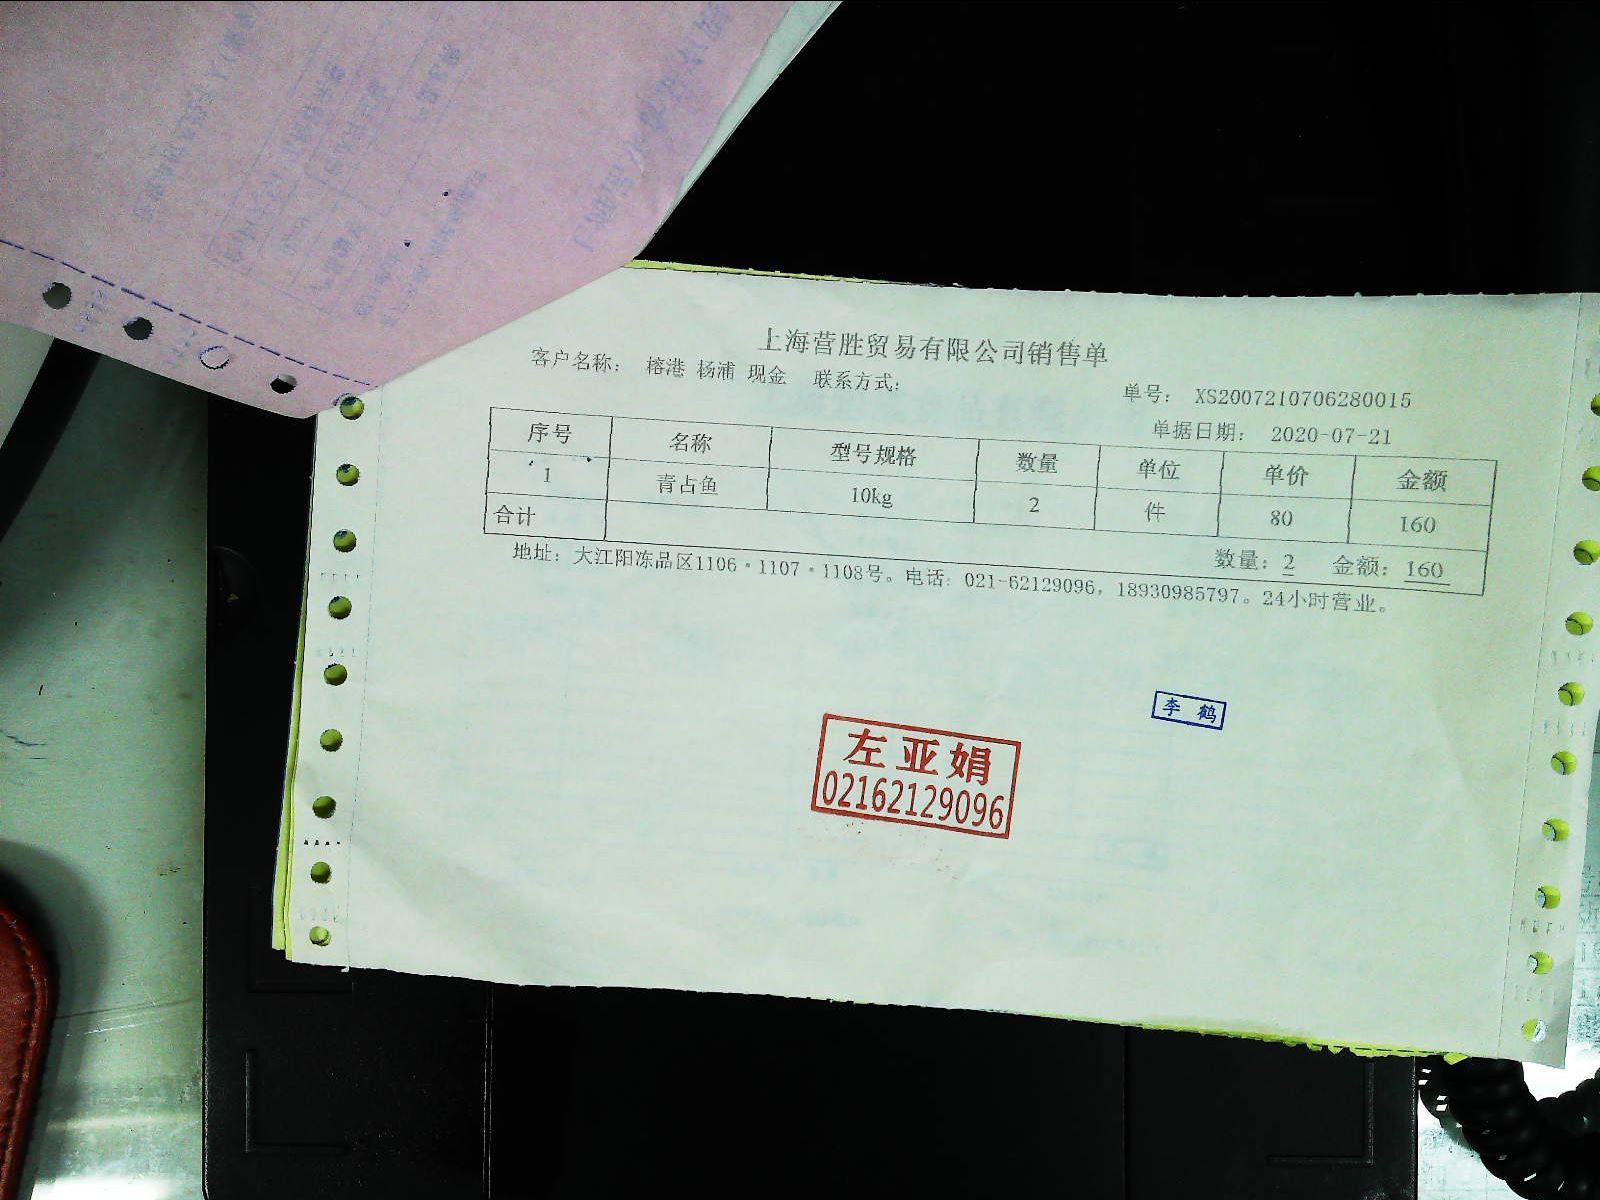 上海营胜贸易有限公司销售单
客户名称： 榕港 杨浦 现金 联系方式：
单号： XS2007210706280015
单据日期： 2020-07-21
序号 名称 型号规格 数量 单位 单价 金额
1 青占鱼 10kg 2 件 80 160
合计 数量：2 金额：160
地址：大江阳冻品区1106·1107·1108号。电话：021-62129096，18930985797。24小时营业。
李 鹤
左亚娟
02162129096